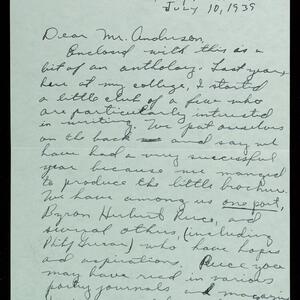 July 10, 1939
Dear Mr. Anderson,
Enclosed with this is a
bit of an anthology. Last year,
here at my college, I started
a little club of a few who
are particularly interested
in writing. We put ourselves
on the back — and say we
have had a very successful
year because we managed
to produce the little brochure.
We have among us one poet,
Byron Herbert Reece, and
several others, (including
Philip Greear) who have hopes
and aspirations. Reece you
may have read in various
poetry journals and magazin